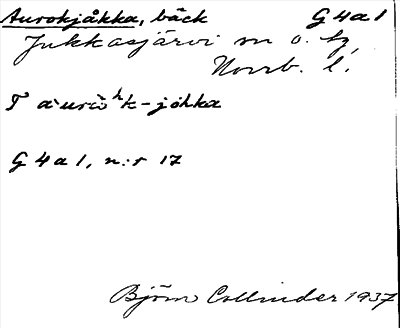 Aurokjåkka, bäck G 4 a 1
Jukkasjärvi sn o. tg,
Norrb. l.
G 4 a 1, n:r 17
Björn Collinder 1937